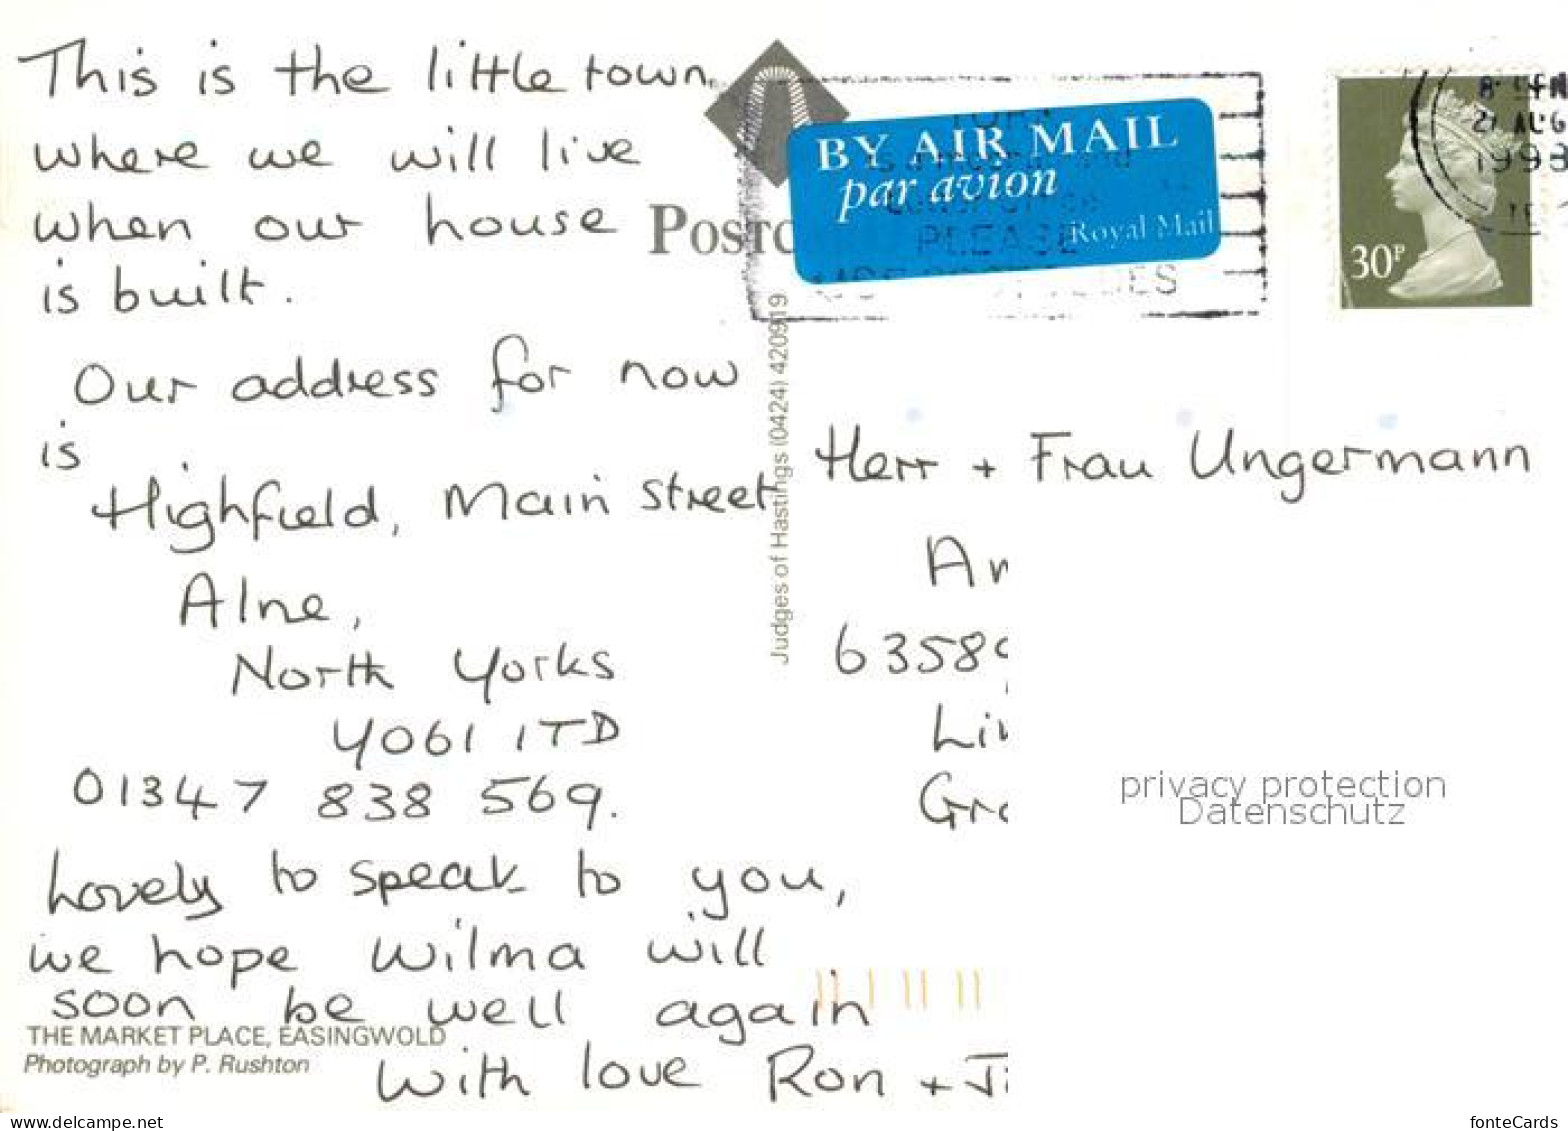 This is the little town
where we will live
when our house
is built.
Our address for now
is
Highfield, Main Street
Alne,
North Yorks
YO61 1TD
01347 838 569.
Lovely to speak to you,
we hope Wilma will
soon be well again
With love Ron +
THE MARKET PLACE, EASINGWOLD
Photograph by P. Rushton
Judges of Hastings (0424) 420919
BY AIR MAIL
par avion
Royal Mail
PLEASE
30P
AUG
1998
Herr + Frau Ungermann
6358
privacy protection
Datenschutz
www.delcampe.net
fonteCards